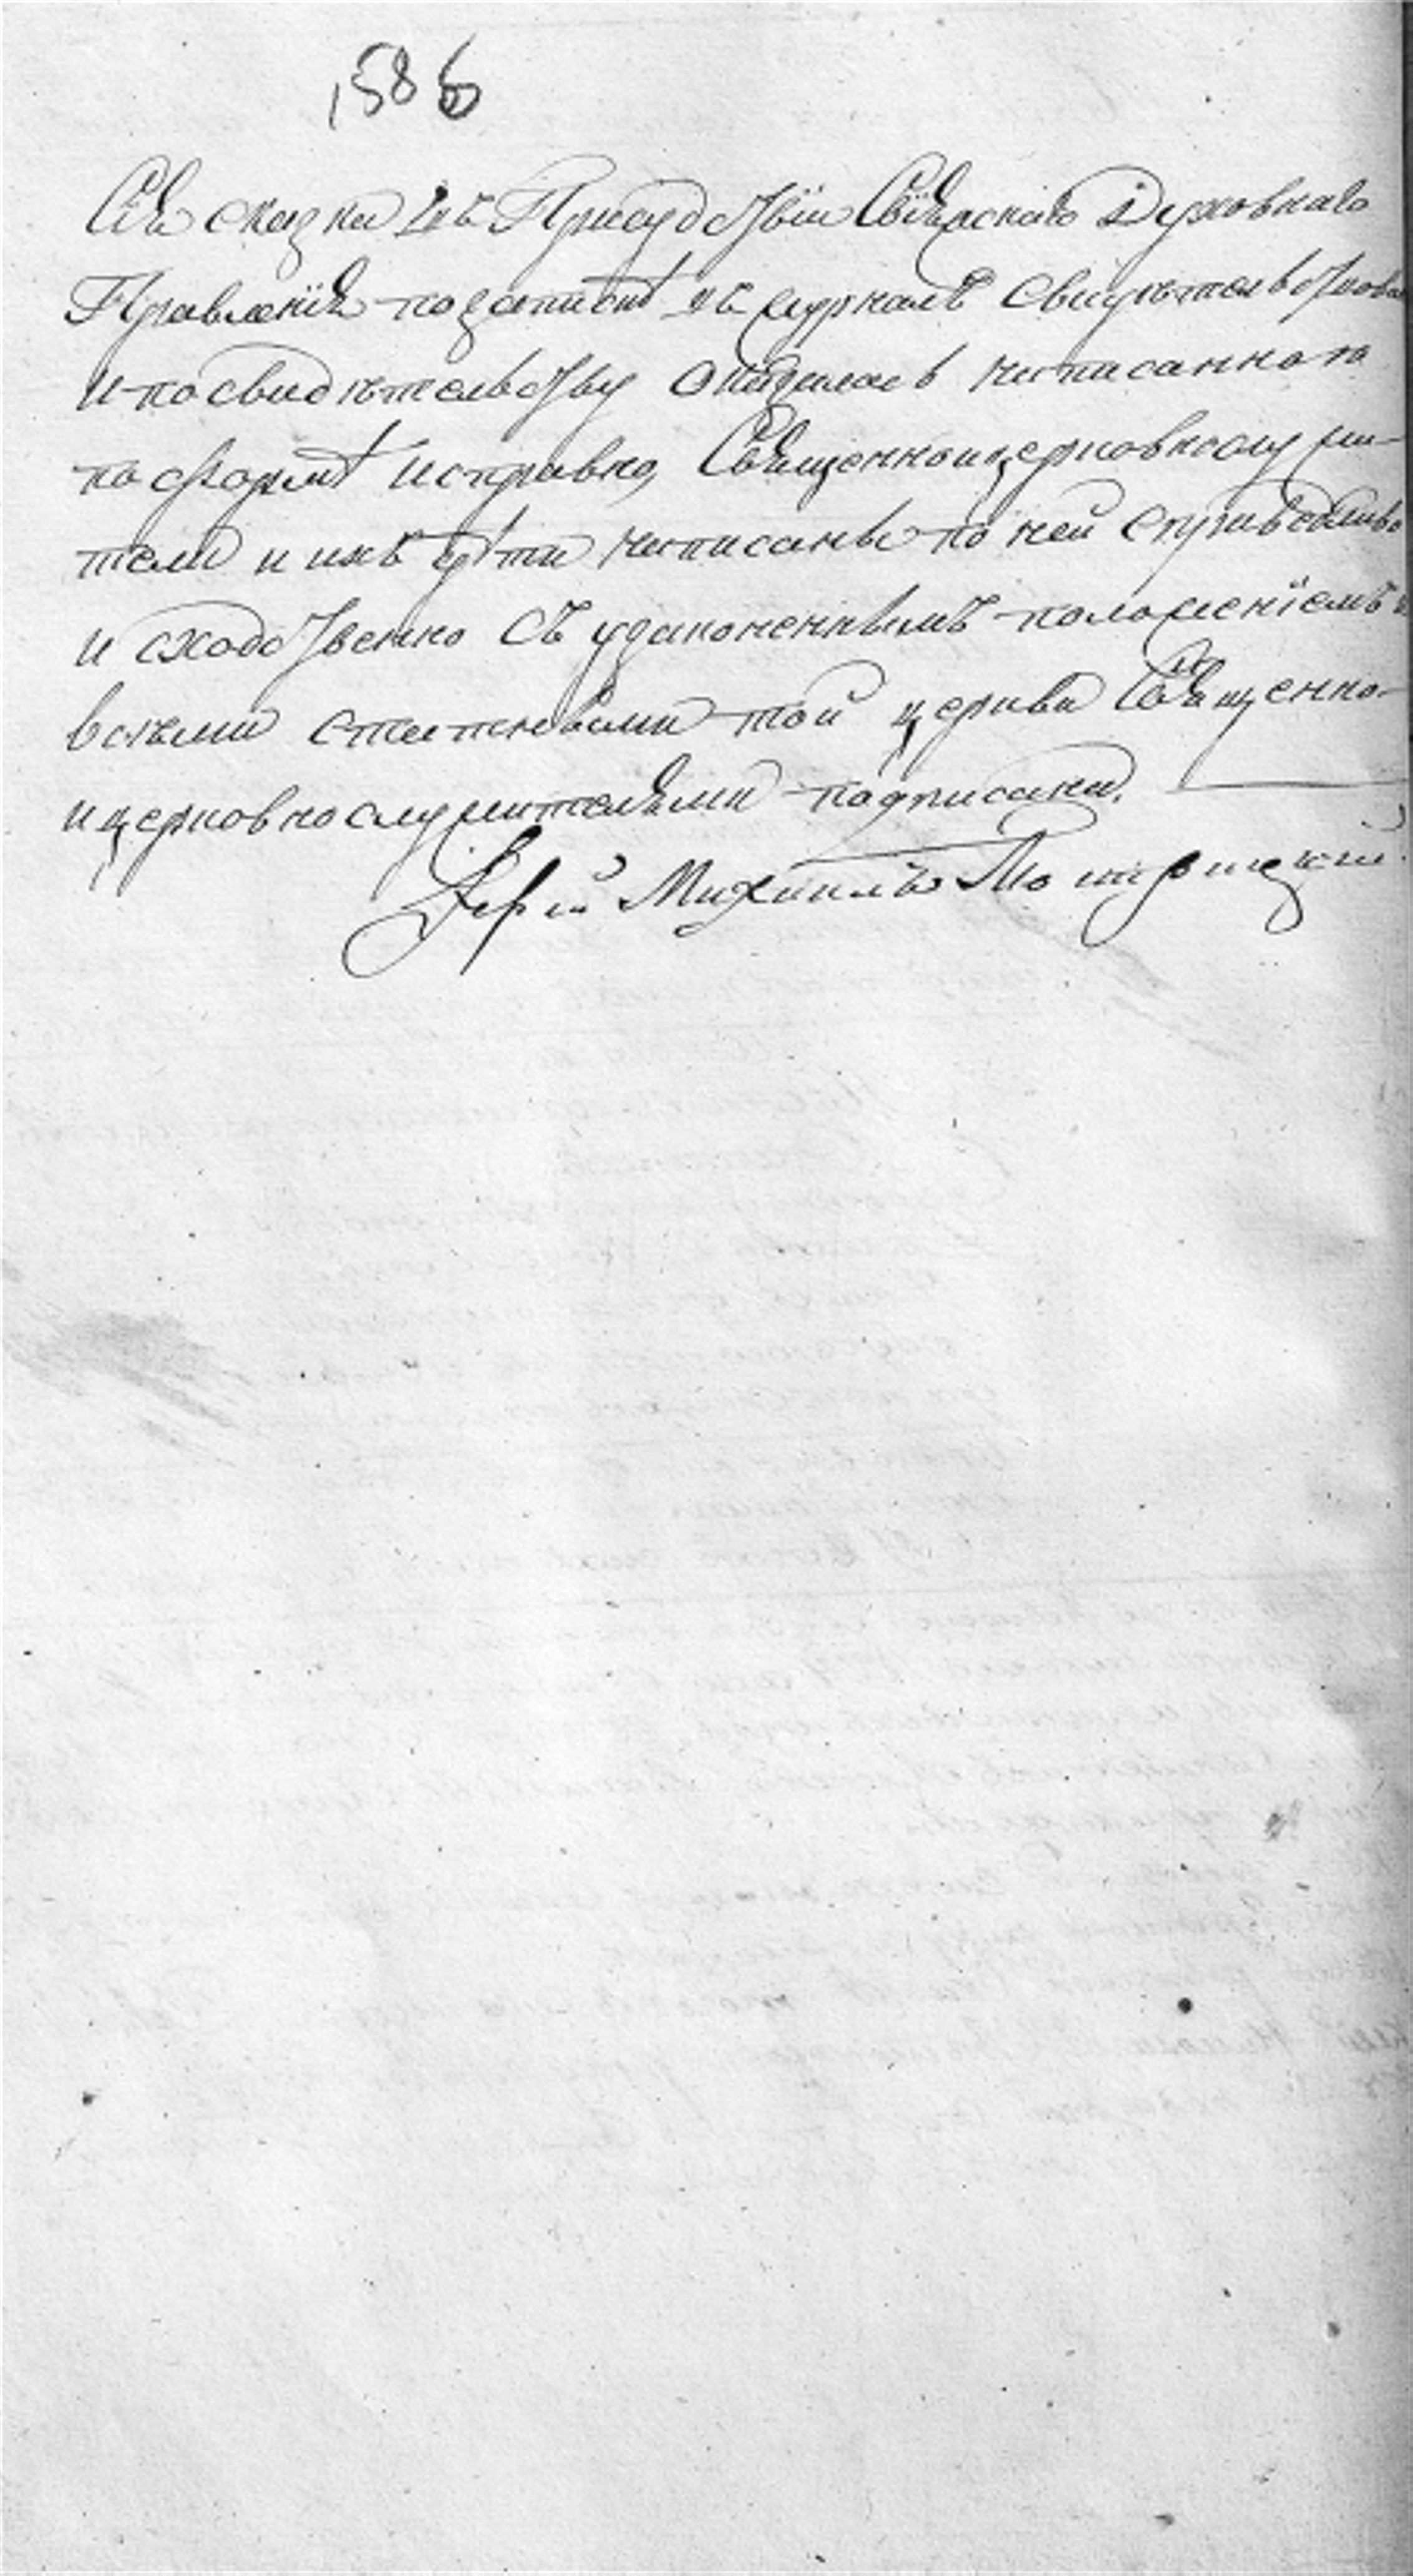 1586
Сія сказка въ Присудствіи Свіяжскаго Духовнаго
Правленія по запискѣ въ журналъ свидѣтельствова
и по свидѣтельству оказалась написанною
по формѣ исправно, Священноицерковнослужи-
тели и ихъ дѣти написаны по ней справедливо
и сходственно съ узаконеннымъ положеніемъ и
всѣми статьями той церкви Священно-
ицерковнослужителями подписана.
Іерей Михаилъ